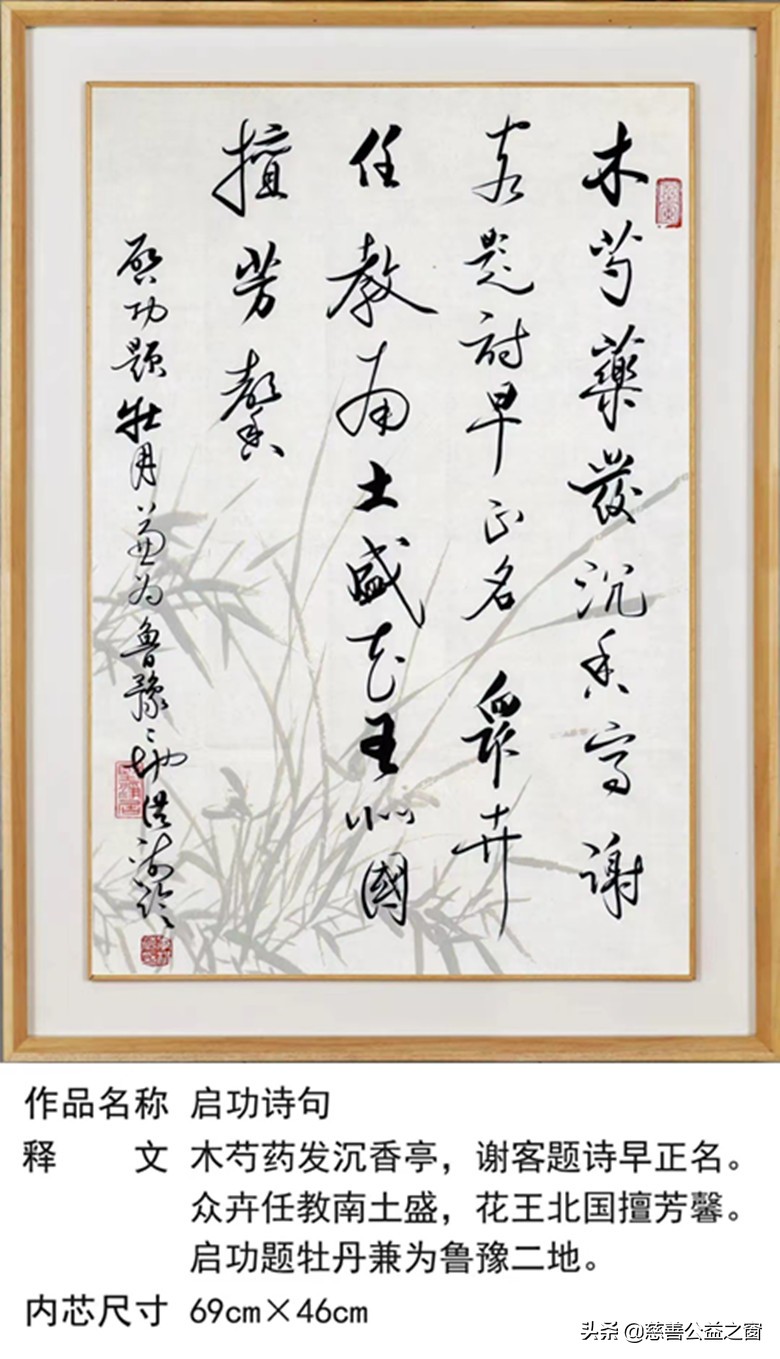 木芍藥發沉香亭謝
客題詩早正名眾卉
任教南土盛花王北國
擅芳馨
啟功題牡丹兼为魯豫二地
作品名称 启功诗句
释 文 木芍药发沉香亭，谢客题诗早正名。
众卉任教南土盛，花王北国擅芳馨。
启功题牡丹兼为鲁豫二地。
内芯尺寸 69cm×46cm
头条 @慈善公益之窗